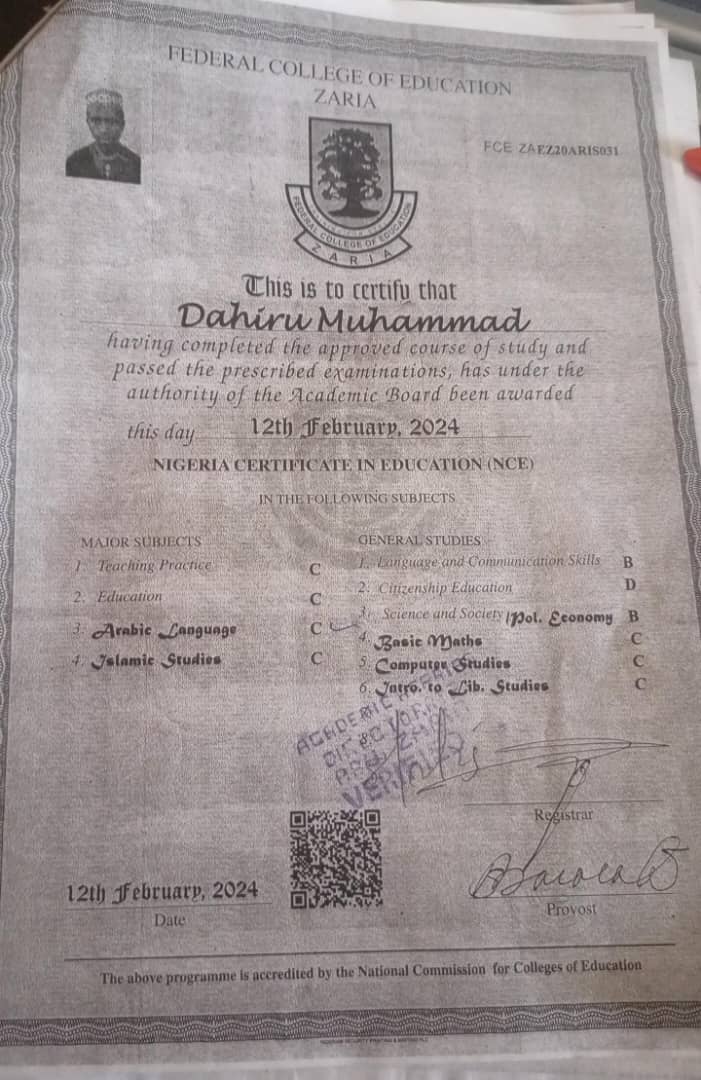 FEDERAL COLLEGE OF EDUCATION
ZARIA
FCE ZAEZ20ARIS031
FEDERAL COLLEGE OF EDUCATION
ZARIA
This is to certify that
Dahiru Muhammad
having completed the approved course of study and
passed the prescribed examinations, has under the
authority of the Academic Board been awarded
this day 12th February, 2024
NIGERIA CERTIFICATE IN EDUCATION (NCE)
IN THE FOLLOWING SUBJECTS
MAJOR SUBJECTS
1. Teaching Practice C
2. Education C
3. Arabic Language C
4. Islamic Studies C
GENERAL STUDIES
1. Language and Communication Skills B
2. Citizenship Education D
3. Science and Society/Pol. Economy B
4. Basic Maths C
5. Computer Studies C
6. Intro. to Lib. Studies C
ACADEMIC
VERIFIED
Registrar
Provost
12th February, 2024
Date
The above programme is accredited by the National Commission for Colleges of Education